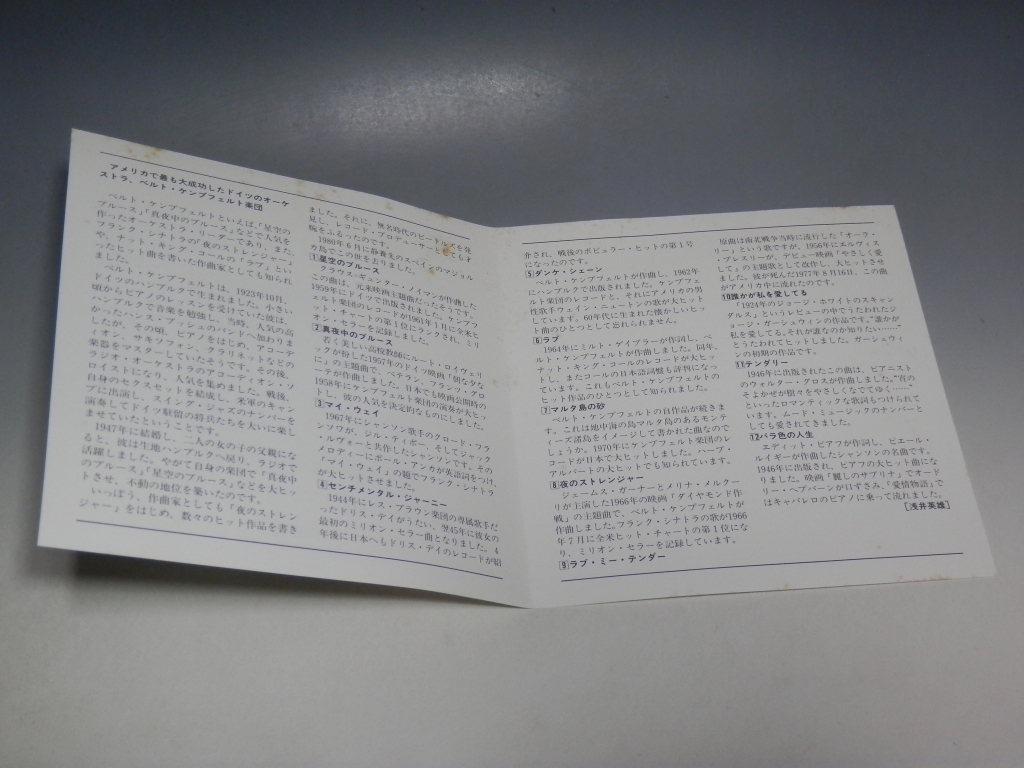 アメリカで最も大成功したドイツのオーケ
ストラ、ベルト・ケンプフェルト楽団
ベルト・ケンプフェルトといえば、「星空の
ブルース」「真夜中のブルース」などで人気を
作ったオーケストラ・リーダーであり、また、
フランク・シナトラの「夜のストレンジャー」
や、ナット・キング・コールの「ラブ」といっ
たヒット曲を書いた作曲家としても知られ
ました。
ベルト・ケンプフェルトは、1923年10月、
ドイツのハンブルクで生まれました。小さい
頃からピアノのレッスンを受けていた彼は、
ハンブルクで音楽を勉強し、当時、人気のあ
ったハンス・ブッシュのバンドへ加わりま
したが、その頃、ピアノをはじめ、アコーデ
ィオン、サキソフォン、クラリネットなどの
楽器をマスターしていたそうです。その後、
ラジオ・オーケストラのアコーディオン・ソ
ロイストになり、人気を集めました。戦後、
自身のセクステットを結成し、米軍のキャン
プに出演し、スイング・ジャズのナンバーを
演奏してドイツ駐留の将兵たちを大いに楽し
ませていたということです。
1947年に結婚し、二人の女の子の父親にな
ると、彼は生地ハンブルクへ戻り、ラジオで
活躍しました。やがて自身の楽団で「真夜中
のブルース」「星空のブルース」などを大ヒッ
トさせ、不動の地位を築いたのです。
いっぽう、作曲家としても「夜のストレン
ジャー」をはじめ、数々のヒット作品を書き
ました。それに、無名時代のビートルズを発
見し、レコード・プロデューサーとしても才
腕をふるったのです。
1980年6月に静養先のスペインのマジョル
カ島でこの世を去りました。
1星空のブルース
クラウス・ギュンター・ノイマンが作曲した
この曲は、元来映画主題曲だったそうです。
1959年にドイツで出版され、ケンプフェ
ルト楽団のレコードが1961年1月に全米ヒッ
ト・チャートの第1位にランクされ、ミリ
オン・セラーを記録しました。
2真夜中のブルース
若く美しい高校教師にルート・ロイヴェリ
ックが扮した1957年のドイツ映画「朝な夕な
に」の主題曲で、フランツ・フランク・グロ
ーテが作曲しました。日本でも映画公開時の
1958年にケンプフェルト楽団の演奏が大ヒッ
トし、彼の人気を決定的なものにしました。
3マイ・ウェイ
1967年にシャンソン歌手のクロード・フラ
ンソワが、ジル・ティボー、そしてジャック
・ルヴォーと共作したシャンソンです。その
メロディーにポール・アンカが英語詞をつけ、
「マイ・ウェイ」の題でフランク・シナトラ
が大ヒットさせました。
4センチメンタル・ジャーニー
1944年にレス・ブラウン楽団の専属歌手だ
ったドリス・デイがうたい、翌45年に彼女の
最初のミリオン・セラー曲となりました。4
年後に日本へもドリス・デイのレコードが紹
介され、戦後のポピュラー・ヒットの第1号
になったのです。
5ダンケ・シェーン
ベルト・ケンプフェルトが作曲し、1962年
にハンブルクで出版されました。ケンプフェ
ルト楽団のレコードと、それにアメリカの男
性歌手ウェイン・ニュートンの歌が大ヒット
しています。60年代に生まれた懐かしいヒッ
ト曲のひとつとして忘れられません。
6ラブ
1964年にミルト・ゲイブラーが作詞し、ベ
ルト・ケンプフェルトが作曲しました。同年、
ナット・キング・コールのレコードが大ヒッ
トし、またコールの日本語詞盤も評判になっ
ています。これもベルト・ケンプフェルトの
ヒット作品のひとつとして知られました。
7マルタ島の砂
ベルト・ケンプフェルトの自作品が続きま
す。これは地中海の島マルタ島のあるモンテ
ィーズ諸島をイメージして書かれた曲なので
しょうか。1970年にケンプフェルト楽団のレ
コードが日本で大ヒットしました。ハーブ・
アルパートの大ヒットでも知られています。
8夜のストレンジャー
ジェームス・ガーナーとメリナ・メルクー
リが主演した1966年の映画「ダイヤモンド作
戦」の主題曲で、ベルト・ケンプフェルトが
作曲しました。フランク・シナトラの歌が1966
年7月に全米ヒット・チャートの第1位にな
り、ミリオン・セラーを記録しています。
9ラブ・ミー・テンダー
原曲は南北戦争当時に流行した「オーラ・
リー」という歌ですが、1956年にエルヴィス
・プレスリーが、デビュー映画「やさしく愛
して」の主題歌として改作し、大ヒットさせ
ました。彼が死んだ1977年8月16日、この曲
がアメリカ中に流れたのです。
10誰かが私を愛してる
「1924年のジョージ・ホワイトのスキャン
ダルス」というレビューの中でうたわれたジ
ョージ・ガーシュウィンの作品です。“誰かが
私を愛してる、それが誰なのか知りたい……”
とうたわれてヒットしました。ガーシュウィ
ンの初期の作品です。
11テンダリー
1946年に出版されたこの曲は、ピアニスト
のウォルター・グロスが作曲しました。“宵の
そよかぜが樹々をやさしくなでてゆく……”
といったロマンティックな歌詞もつけられて
います。ムード・ミュージックのナンバーと
しても愛されてきました。
12バラ色の人生
エディット・ピアフが作詞し、ピエール・
ルイギーが作曲したシャンソンの名曲です。
1946年に出版され、ピアフの大ヒット曲にな
りました。映画「麗しのサブリナ」でオード
リー・ヘプバーンが口ずさみ、「愛情物語」で
はキャバレロのピアノに乗って流れました。
［浅井英雄］